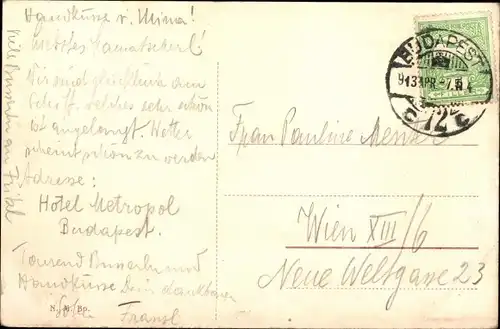 Handküsse v. Mina!
Wir sind glücklich am
Schiff, welches sehr schön
ist angelangt. Wetter
scheint schön zu werden.
Adresse:
Hotel Metropol
Budapest.
Tausend Busserln und
Handküsse Dein dankbarer
Franzl
Viele Busserln an Friedl
N. M. Bp.
BUDAPEST
913 APR
72
Frau Pauline
Wien XIII/6
Neue Weltgasse 23